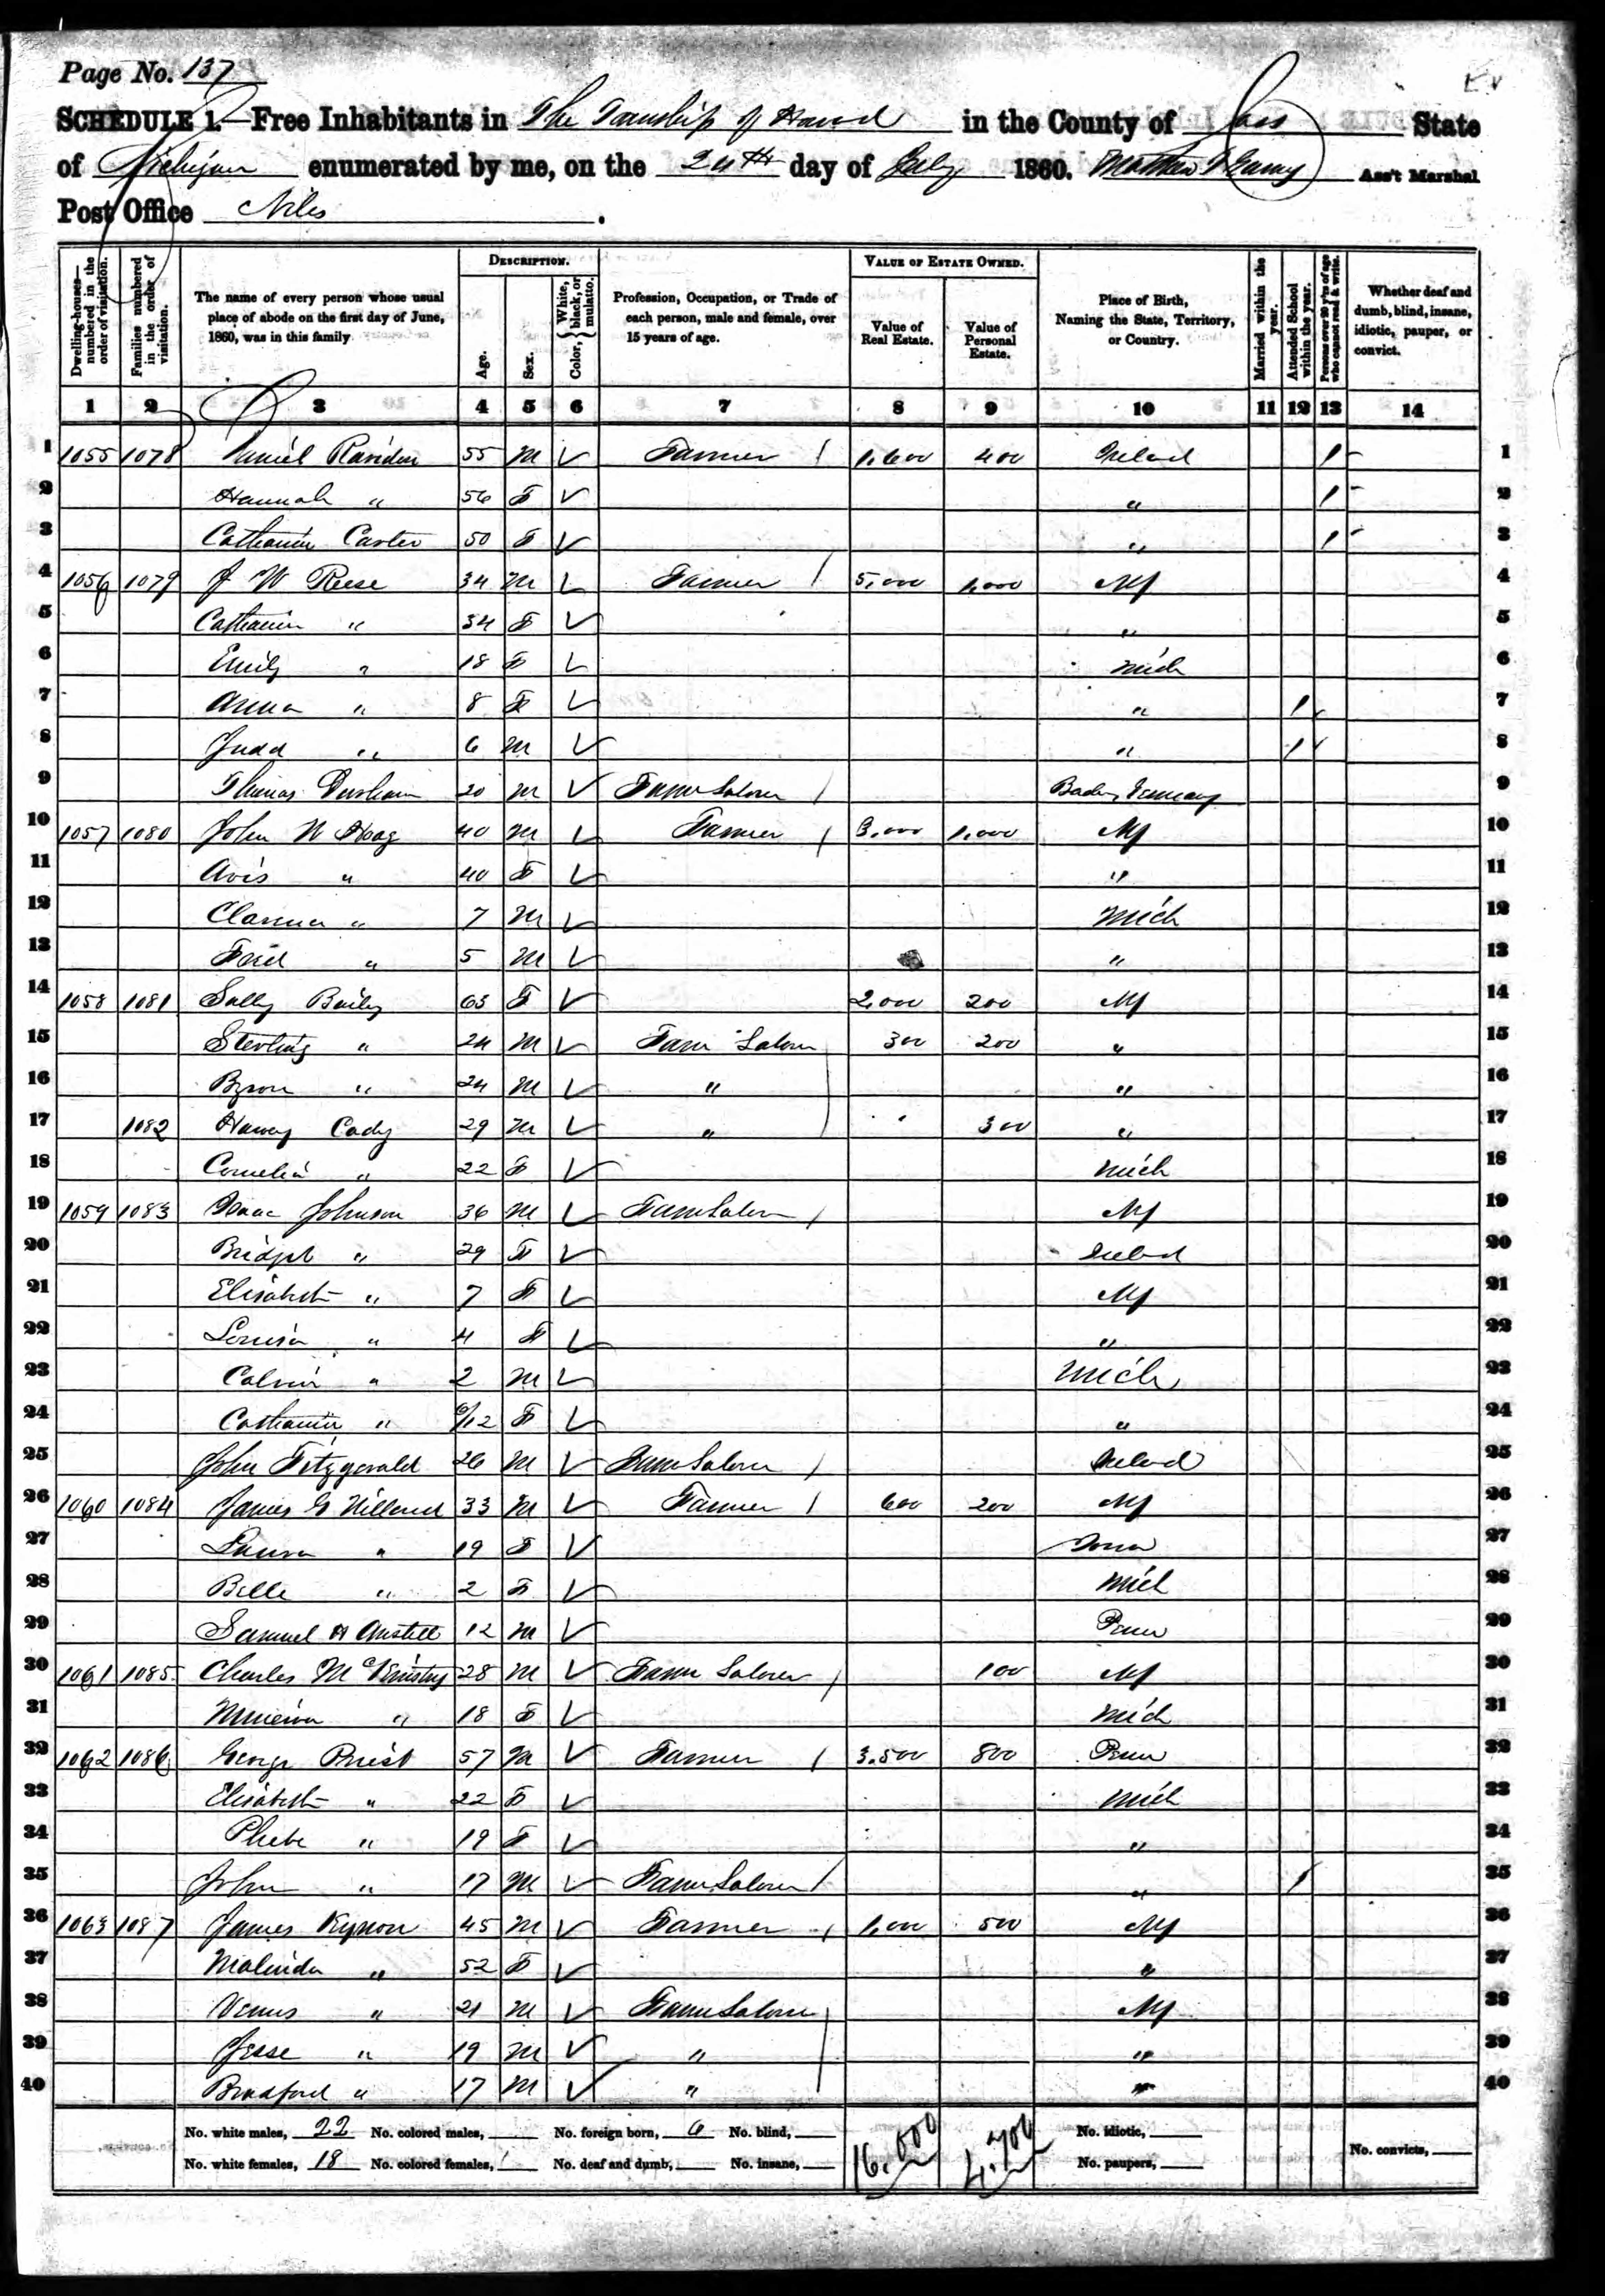 Page No. 137
SCHEDULE 1.—Free Inhabitants in The Township of Howard in the County of Cass State
of Michigan enumerated by me, on the 24th day of July 1860. Ass't Marshal
Post Office Niles .
Dwelling-houses—numbered in the order of visitation.
Families numbered in the order of visitation.
The name of every person whose usual place of abode on the first day of June, 1860, was in this family
DESCRIPTION.
Age.
Sex.
Color, { White, black, or mulatto.
Profession, Occupation, or Trade of each person, male and female, over 15 years of age.
VALUE OF ESTATE OWNED.
Value of Real Estate.
Value of Personal Estate.
Place of Birth, Naming the State, Territory, or Country.
Married within the year.
Attended School within the year.
Persons over 20 y'rs of age who cannot read & write.
Whether deaf and dumb, blind, insane, idiotic, pauper, or convict.
1 2 3 4 5 6 7 8 9 10 11 12 13 14
1 1055 1078 Daniel 55 M ✓ Farmer / 1,600 400 Ireland / 1
2 Hannah " 56 F ✓ " / 2
3 Catharin Carter 50 F ✓ " / 3
4 1056 1079 J W Reese 34 M ✓ Farmer / 5,000 1,000 NY 4
5 Catharin " 34 F ✓ " 5
6 Emily " 18 F ✓ Mich 6
7 Anna " 8 F ✓ " / 7
8 Judd " 6 M ✓ " / 8
9 Thomas 20 M ✓ Farm Laborer / Baden Germany 9
10 1057 1080 John W Hoag 40 M ✓ Farmer / 3,000 1,000 NY 10
11 Avis " 40 F ✓ " 11
12 Clarence " 7 M ✓ Mich 12
13 Fred " 5 M ✓ " 13
14 1058 1081 Sally Baily 63 F ✓ 2,000 200 NY 14
15 Sterling " 24 M ✓ Farm Laborer 300 200 " 15
16 Byron " 24 M ✓ " " 16
17 1082 Harvey Cady 29 M ✓ " 300 " 17
18 Cornelia " 22 F ✓ Mich 18
19 1059 1083 Isaac Johnson 36 M ✓ Farm Laborer / NY 19
20 Bridget " 29 F ✓ Ireland 20
21 Elisabeth " 7 F ✓ NY 21
22 Louisa " 4 F ✓ " 22
23 Calvin " 2 M ✓ Mich 23
24 Catharin " 6/12 F ✓ " 24
25 John Fitzgerald 26 M ✓ Farm Laborer / Ireland 25
26 1060 1084 James G Willard 33 M ✓ Farmer / 600 200 NY 26
27 Laura " 19 F ✓ Iowa 27
28 Belle " 2 F ✓ Mich 28
29 Samuel H Anstill 12 M ✓ Penn 29
30 1061 1085 Charles McKinstry 28 M ✓ Farm Laborer / 100 NY 30
31 Minerva " 18 F ✓ Mich 31
32 1062 1086 George Priest 57 M ✓ Farmer / 3.500 800 Penn 32
33 Elisabeth " 22 F ✓ Mich 33
34 Phebe " 19 F ✓ " 34
35 John " 17 M ✓ Farm Laborer / " / 35
36 1063 1087 James Kynon 45 M ✓ Farmer / 1,000 500 NY 36
37 Malinda " 52 F ✓ " 37
38 " 21 M ✓ Farm Laborer NY 38
39 Jesse " 19 M ✓ " " 39
40 Bradford " 17 M ✓ " " 40
No. white males, 22 No. colored males, No. foreign born, 6 No. blind, 16.000 4.700 No. idiotic,
No. white females, 18 No. colored females, No. deaf and dumb, No. insane, No. paupers, No. convicts,